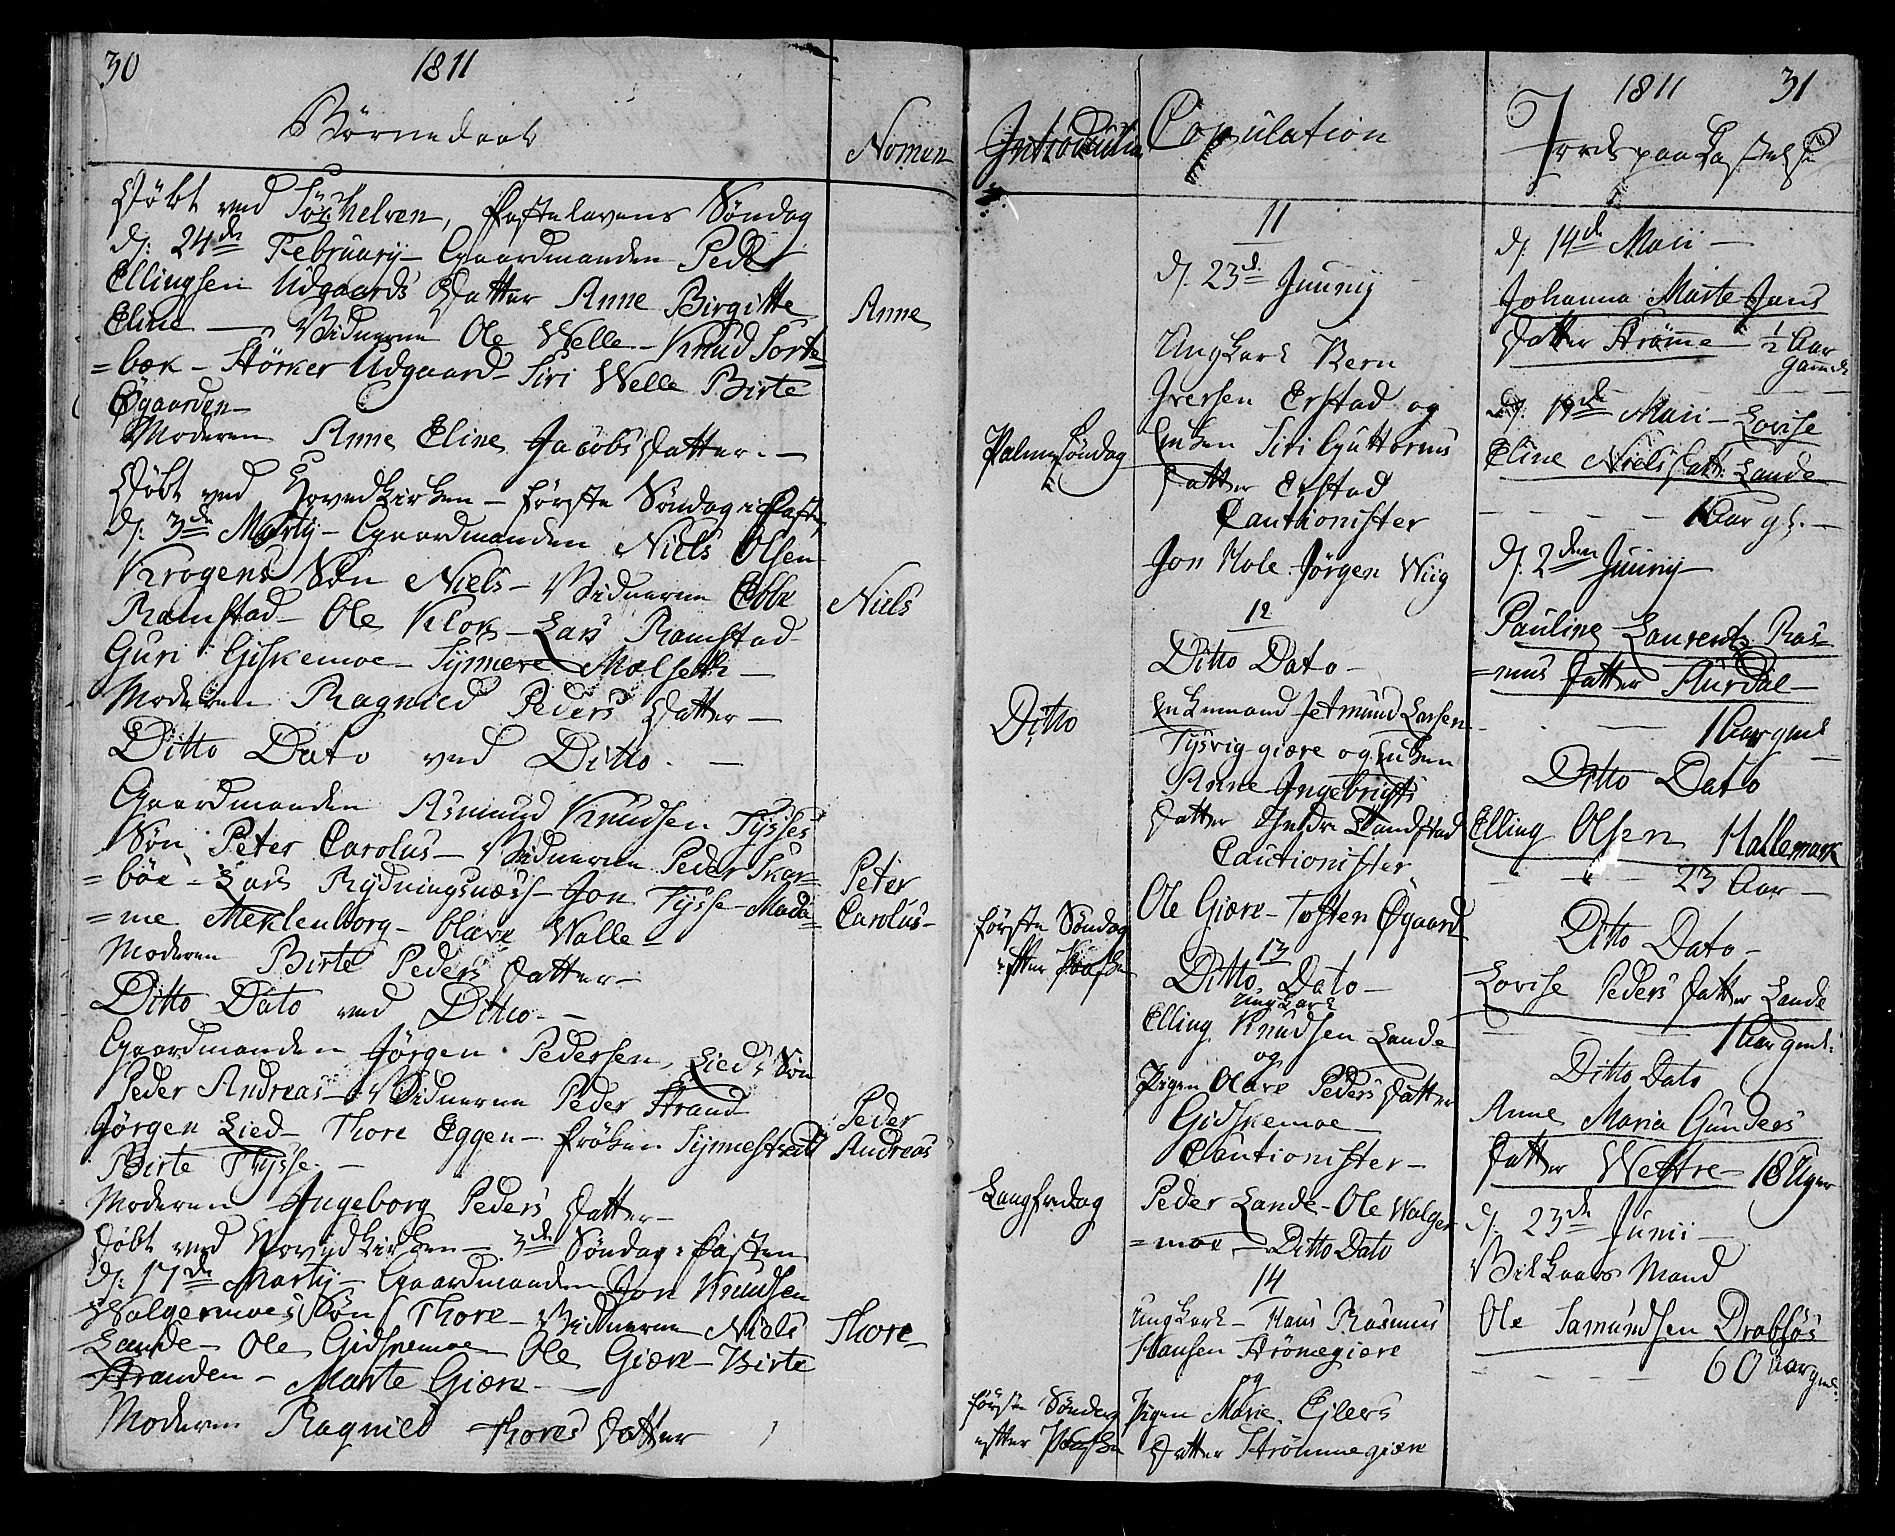 30
1811
Børnedaab
Nomen
Døbt ved Søchelven, Fastelavens Søndag
d: 24de February - Gaardmanden Peder
Ellingsen Udgaards Datter Anne Birgitte
Eline - Vidnerne Ole Welle - Knud Sorte
=bæk - Størker Udgaard - Siri Welle Birte
Øgaarden -
Moderen Anne Eline Jacobs Datter. -
Anne
Døbt ved Hovedkirken - første Søndag i Faste,
d: 3de Marty - Gaardmanden Niels Olsen
Krogens Søn Niels - Vidnerne Ebbe
Ramstad - Ole Klok - Lars Ramstad
Guri Giskemoe - Synnere Molseth -
Moderen Ragnild Peders Datter -
Niels
Ditto Dato ved Ditto. -
Gaardmanden Asmund Knudsen Tysses
Søn Peter Carolus - Vidnerne Peder Skar=
=bøe - Lars Rydningsnæss - Jon Tysse - Mada
=me Meklenborg - Olave Walle -
Moderen Birte Peders Datter -
Peter
Carolus -
Ditto Dato ved Ditto -
Gaardmanden Jørgen Pedersen Lieds Søn
Peder Andreas - Vidnerne Peder Strand
Jørgen Lied - Thore Eggen - Frøken Synnestvedt
Birte Tysse. -
Moderen Ingeborg Peders Datter -
Peder
Andreas
Døbt ved Hovedkirken - 3de Søndag i Fasten
d: 17de Marty - Gaardmanden Jon Knudsen
Wolgermoes Søn Thore - Vidnerne Niels
Lande - Ole Gidskemoe Ole Giære - Birte
Stranden - Marte Giære -
Moderen Ragnild Thores Datter
Thore
Introduction
Palme Søndag
Ditto
første Søndag
efter Paaske
Langfredag
første Søndag
efter Paaske
Copulation
11
d: 23d Juuny
Ungkarl Bern
Iversen Erstad og
Enken Siri Guttorms
Datter Erstad
Cautionister
Jon Hole Jørgen Wiig
12
Ditto Dato -
Enkemand Jetmund Larsen
Tysvig giære og Enken
Anne Ingebrigts
Datter Landstad
Cautionister
Ole Giære - Tosten Øgaard
13
Ditto Dato -
Ungkarl
Elling Knudsen Lande
og
Pigen Olave Peders Datter
Gidskemoe
Cautionister -
Peder Lande - Ole Wolger
=moe - Ditto Dato
14
Ungkarl - Hans Rasmus
Hansen Strømegiære
og
Pigen Marie Ejlers
Datter Strømmegiære
1811
31
Jords paa Kastelse
d: 14de Maii -
Johanna Marte Jans
Datter Strømme 1/2 Aar
Gamel
d: 19de Maii - Lovise
Eline Niels Datt: Lande
1 Aar gl. -
d: 2den Juuny -
Pauline Laurentz Ras=
=mus Datter Aurdal -
1 Aar gml
Ditto Dato
Elling Olsen Hallemark
23 Aar -
Ditto Dato -
Lovise Peders Datter Lande
1 Aar gml:
Ditto Dato
Anne Maria Gunders
Datter Westre - 18 Uger
d: 23de Junii -
Vilkaars Mand
Ole Samundsen Drabløs
60 Aar gml: